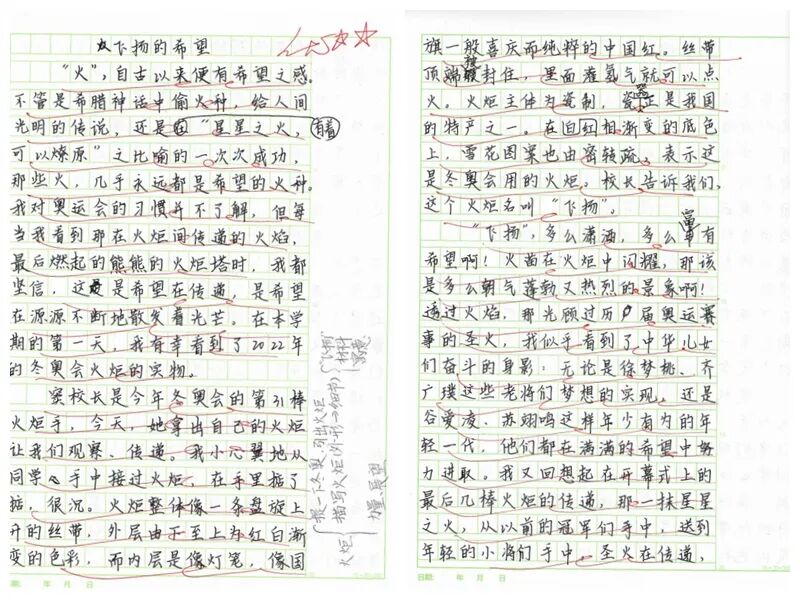 飞扬的希望
“火”，自古以来便有希望之感。
不管是希腊神话中偷火种，给人间
光明的传说，还是“星星之火，
可以燎原”之比喻的一次次成功，
那些火，几乎永远都是希望的火种。
我对奥运会的习惯并不了解，但每
当我看到那在火炬间传递的火焰，
最后燃起的熊熊的火炬塔时，我都
坚信，这是希望在传递，是希望
在源源不断地散发着光芒。在本学
期的第一天，我有幸看到了2022年
的冬奥会火炬的实物。
窦校长是今年冬奥会的第31棒
火炬手，今天，她拿出自己的火炬
让我们观察、传递。我小心翼地从
同学手中接过火炬，在手里掂了
掂，很沉。火炬整体像一条盘旋上
升的丝带，外层由下至上为红白渐
变的色彩，而内层是像灯笼，像国
期： 年 月 日
旗一般喜庆而纯粹的中国红。丝带
顶端被封住，里面灌氢气就可以点
火。火炬主体为瓷制，瓷正是我国
的特产之一。在白红相渐变的底色
上，雪花图案也由密转疏，表示这
是冬奥会用的火炬。校长告诉我们，
这个火炬名叫“飞扬”。
“飞扬”，多么潇洒，多么富有
希望啊！火苗在火炬中闪耀，那该
是多么朝气蓬勃又热烈的景象啊！
透过火焰，那光顾过历届奥运赛
事的圣火，我似乎看到了中华儿女
们奋斗的身影：无论是徐梦桃、齐
广璞这些老将们梦想的实现，还是
谷爱凌、苏翊鸣这样年少有为的年
轻一代，他们都在满满的希望中努
力进取。我又回想起在开幕式上的
最后几棒火炬的传递，那一抹星星
之火，从以前的冠军们手中，送到
年轻的小将们手中，圣火在传递，
日期： 年 月 日